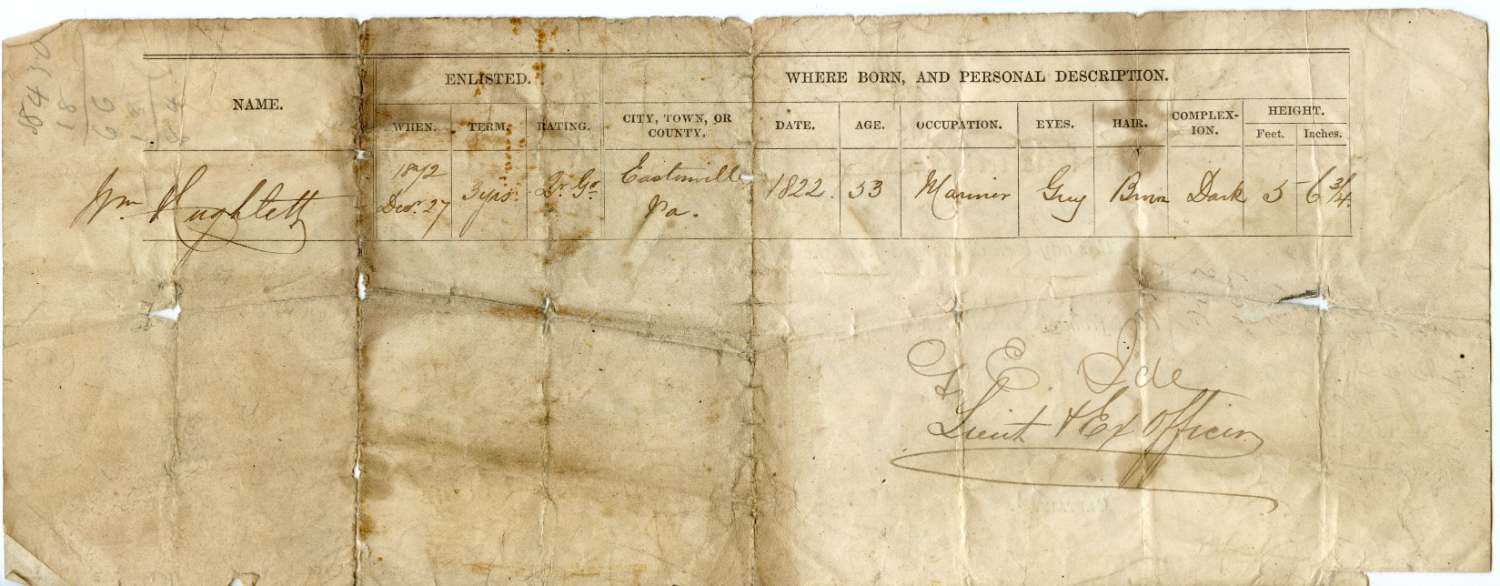 ENLISTED. WHERE BORN, AND PERSONAL DESCRIPTION.
NAME. WHEN. TERM. RATING. CITY, TOWN, OR COUNTY. DATE. AGE. OCCUPATION. EYES. HAIR. COMPLEX-ION. HEIGHT. Feet. Inches.
Wm Hughlett 1872 Decr. 27 3 yrs. Qr. Gr. Eastville Va. 1822. 53 Mariner Grey Brown Dark 5 6 3/4.
G E. Ide
Lieut & Ex Officer